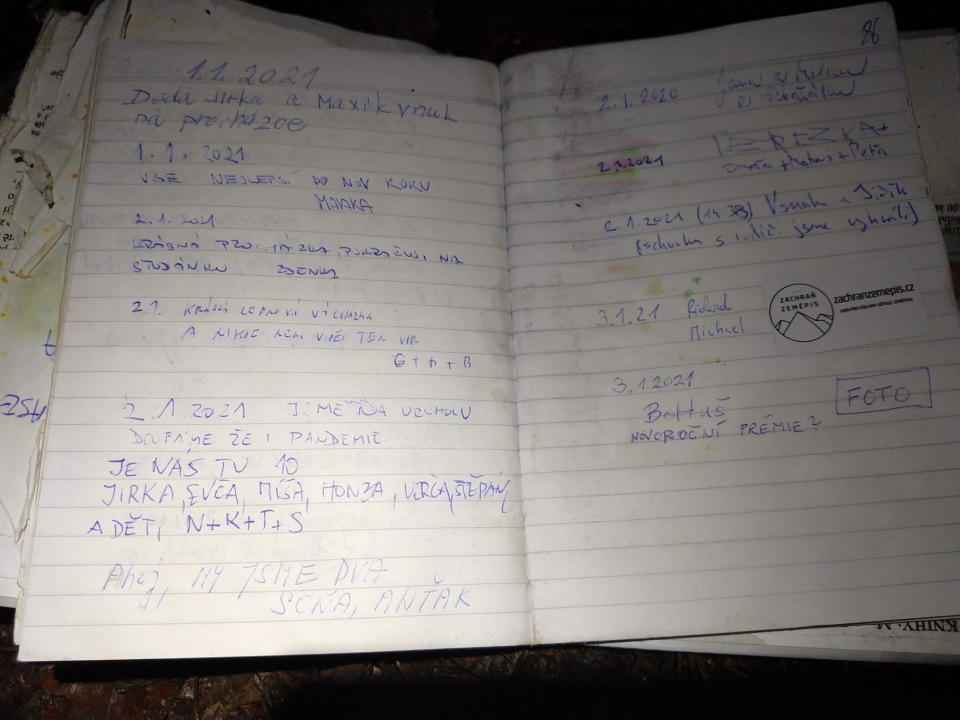 1.1.2021
Děda Jirka a Maxík vnuk
na procházce
1.1.2021
VŠE NEJLEPŠÍ DO NOV ROKU
MAAKA
2.1.2021
KRÁSNÁ PROCHÁZKA, POKRAČUJI NA
STUDÁNKU ZDENKA
2.1. KRÁSNÁ LEDNOVÁ
A NIKDE NENÍ VIDĚT TEN VIR
G + A + B
2.1.2021 JSME NA VRCHOLU
DOUFÁME ŽE I PANDEMIE
JE NÁS TU 10
JIRKA, EVČA, MÍŠA, HONZA, VERČA, ŠTĚPÁN,
A DĚTI, N+K+T+S
Ahoj, MY JSME DVA
SOŇA, ANŤÁK
86
2.1.2020
2.1.2021 TEREZKA+
+Péťa
2.1.2021 (14:38) a Jiřík
jsme vyhráli)
3.1.21 Richard
Michael
ZACHRAŇ
ZEMĚPIS
zachranzemepis.cz
3.1.2021
NOVOROČNÍ PRÉMIE?
FOTO
KNIHY: M